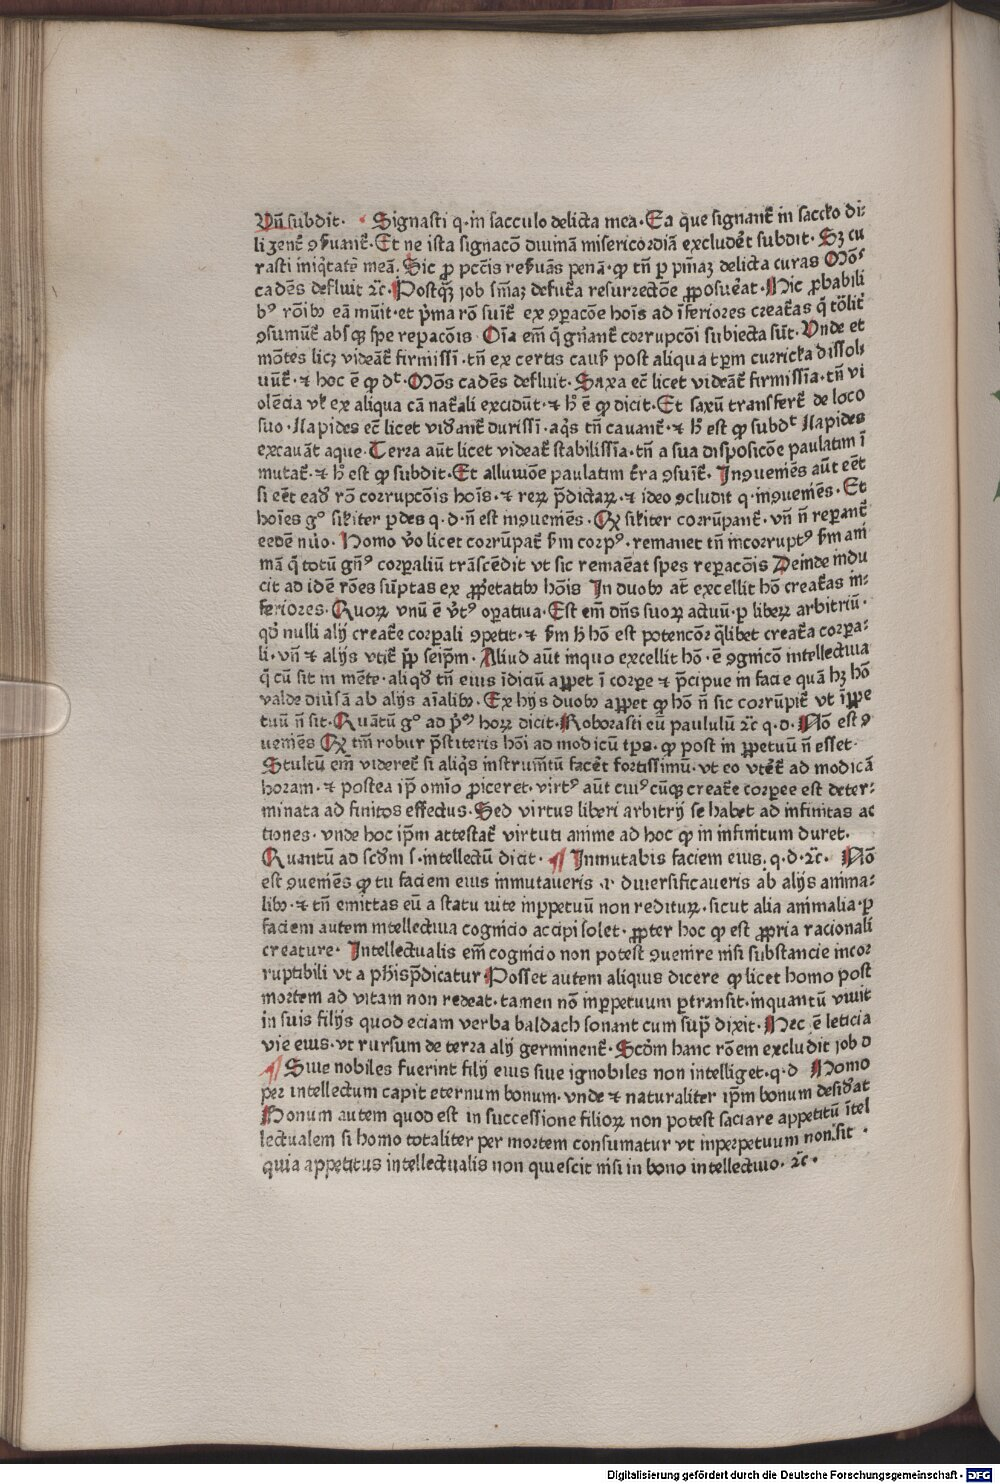 Vn̄ subdit. Signasti q. in sacculo delicta mea. Ea que signant᷑ in saccło di⸗
li gent᷑ ꝯẜuant᷑. Et ne ista signacō diuinā misericordiā excludēt subdit. Sꝫ cu
rasti iniq̇tatē meā. Sic ꝓ pcc̄is reẜuās penā. ꝙ tn̄ ꝑ pm̄aꝫ delicta curas Mōs
cadēs defluit ⁊c̄. Postq̄ꝫ iob sm̄aꝫ de fut᷑a resurrectōe ꝓposuẽat. Hic ꝓbabili
bꝰ rōibꝫ eā muīt. et pͥma rō suīt᷑ ex ꝯꝑacōe hoīs ad īferiores creat᷑as q̄ tōlit᷑
ꝯsumūt᷑ absqꝫ spe repacōis Oīa em̄ q̄ gn̄ant᷑ corrupcōi subiecta sūt. Vnde et
mōtes licꝫ videāt᷑ firmissī. tn̄ ex certis causꝭ post aliqua tꝑm curricła dissolu
uūt᷑. ⁊ hoc ē ꝙ dt. Mōs cadēs defluit. Saxa ec̄ licet videāt᷑ firmissīa. tn̄ vi
olēcia vł ex aliqua cā nat᷑ali excidūt. ⁊ h̄ ē ꝙ dicit. Et saxū transfert᷑ de loco
suo. Lapides ec̄ licet vidẽant᷑ durissī. aqͣs tn̄ cauant᷑. ⁊ h̄ est ꝙ subdt Lapides
excauāt aque. Terra aūt licet videat᷑ stabilissīa. tn̄ a sua disposicōe paulatim ī
mutat᷑. ⁊ h̄ est ꝙ subdit. Et alluuiōe paulatim t᷑ra ꝯsuīt᷑. Inꝯueniēs aūt eēt
si eēt eadꝫ rō corrupcōis hoīs. ⁊ reꝝ p̄dictaꝝ. ⁊ ideo ꝯcludit q. inꝯueniēs. Et
hoīes gͦ siłiter ꝑdes q. d. n̄ est inꝯueniēs. Qꝛ siłiter corrūpant᷑. vn̄ n̄ reꝑant᷑
eedē nūo. Homo v̊o licet corrūpat᷑ ẜm corpꝰ. remanet tn̄ incorruptꝰ ẜm ani
mā q̄ totū gn̄ꝰ corꝑaliū trāscēdit vt sic remaēat spes reꝑacōis Deinde indu
cit ad idē rōes sūptas ex ꝓprietatibꝫ hōis In duobꝫ at̄ excellit hō creat᷑as in⸗
feriores. Quoꝝ vnū ē v̊tꝰ oꝑatiua. Est em̄ dn̄s suoꝝ actuū. ꝑ liberꝝ arbitriū.
qd̊ nulli alij creat᷑e corꝑali ꝯpetit. ⁊ ẜm h̄ hō est potencōr q̄libet creat᷑a corꝑa⸗
li. vn̄ ⁊ alijs vtit᷑ pꝑ seip̄m. Aliud aūt inquo excellit hō. ē ꝯgnicō intellectiua
q̄ cū sit in mēte. aliqd̊ tn̄ eius īdiciū apꝑet ī corꝑe ⁊ p̄cipue in facie quā hꝫ hō
valde diūsā ab alijs aīalibꝫ. Ex hijs duobꝫ apꝑet ꝙ hō n̄ sic corrūpit᷑ vt īꝑpe
tuū n̄ sit. Quātū gͦ ad pͥꝰ horꝝ dicit. Roborasti eū paululū ⁊c̄ q. d. Nō est ꝯ
ueniēs Qꝛ tm̄ robur p̄stiteris hōi ad modicū tꝑs. ꝙ post in ꝑpetuū n̄ esset.
Stultū em̄ videret᷑ si aliq̇s instrum̄tū facēt fortissimū. vt eo vtēt᷑ ad modicā
horam. ⁊ postea ip̄m om̄io ꝓiceret. virtꝰ aūt cuiꝰcūqꝫ creat᷑e corꝑee est deter⸗
minata ad finitos effectus. Sed virtus liberi arbitrij se habet ad infinitas ac
tiones. vnde hoc ip̄m attestat᷑ virtuti anime ad hoc ꝙ in infinitum duret.
Quantū ad scd̊m s. intellectū dicit. ¶ Inmutabis faciem eius. q. d. ⁊c̄. Nō
est ꝯueniēs ꝙ tu faciem eius inmutaueris .i. diuersificaueris ab alijs anima⸗
libꝫ. ⁊ tn̄ emittas eū a statu vite inꝑpetuū non redituꝝ. sicut alia animalia. ꝑ
faciem autem intellectiua cognicio accipi solet. ꝓpter hoc ꝙ est ꝓpria racionali
creature. Intellectualis em̄ cognicio non potest ꝯuenire nisi substancie incor
ruptibili vt a ph̄is p̄dicatur Posset autem aliquis dicere ꝙ licet homo post
mortem ad vitam non redeat. tamen nō inꝑpetuum ꝑtransit. inquantū viuit
in suis filijs quod eciam verba baldach sonant cum sup̄ dixit. Hec ē leticia
vie eius. vt rursum de terra alij germinent᷑. Scd̊m hanc rōem excludit iob d
¶ Siue nobiles fuerint filij eius siue ignobiles non intelliget. q. d Homo
per intellectum capit eternum bonum. vnde ⁊ naturaliter ip̄m bonum desidẽat
Bonum autem quod est in successione filioꝝ non potest saciare appetitū ītel
lectualem si homo totaliter per mortem consumatur vt inperpetuum non sit.
quia appetitus intellectualis non quiescit nisi in bono intellectiuo. ⁊c̄.
Digitalisierung gefördert durch die Deutsche Forschungsgemeinschaft - DFG